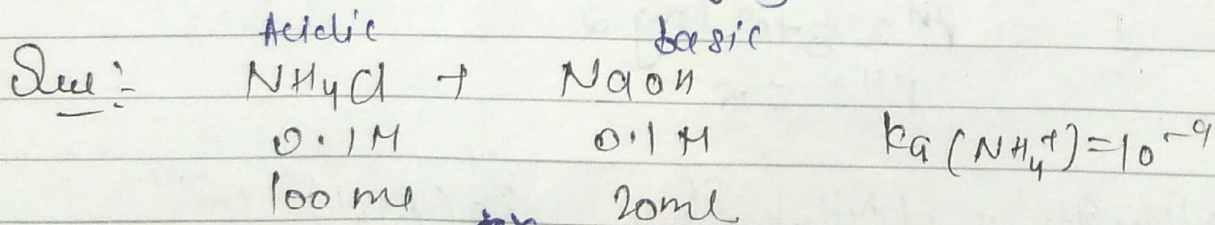 Acidic basic
Que:- NH4Cl + NaOH
0.1M 0.1M Ka (NH4+) = 10-9
100 ml 20ml